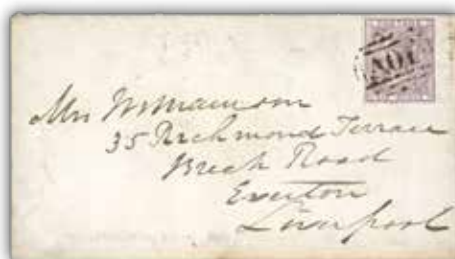 A01
Mrs Williamson
35 Richmond Terrace
Breck Road
Everton
Liverpool